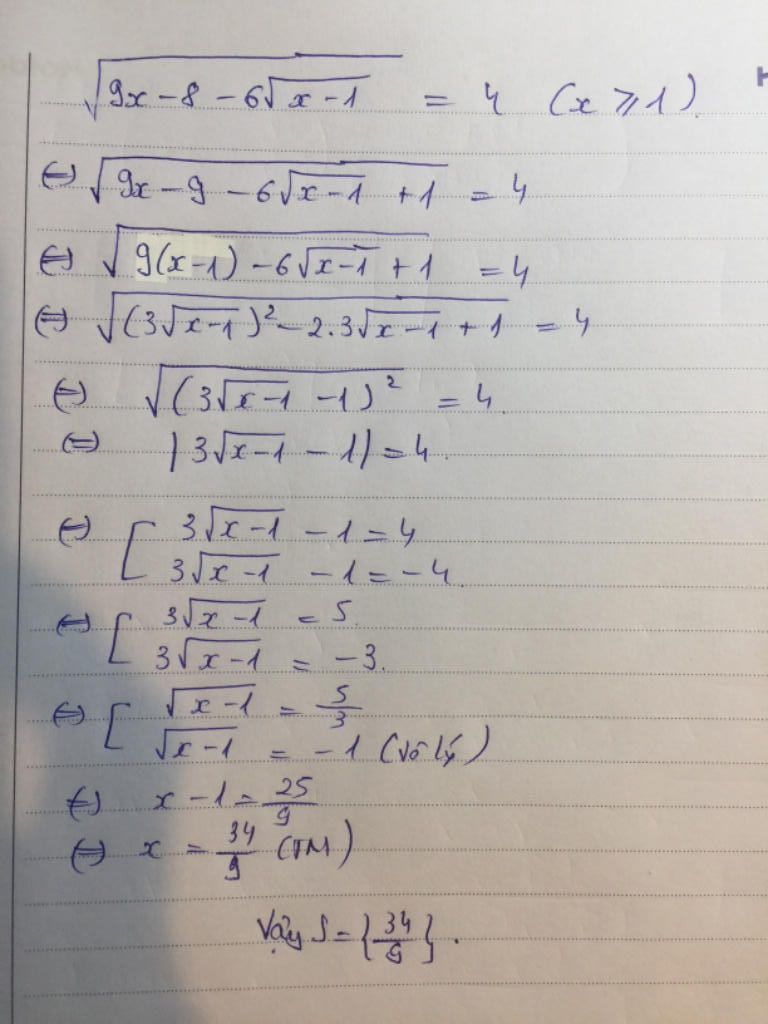 √(9x - 8 - 6√(x-1)) = 4 (x ⩾ 1)
⇔ √(9x - 9 - 6√(x-1) + 1) = 4
⇔ √(9(x-1) - 6√(x-1) + 1) = 4
⇔ √((3√(x-1))² - 2.3√(x-1) + 1) = 4
⇔ √((3√(x-1) - 1)²) = 4.
⇔ |3√(x-1) - 1| = 4.
⇔ [ 3√(x-1) - 1 = 4
3√(x-1) - 1 = -4.
⇔ [ 3√(x-1) = 5.
3√(x-1) = -3.
⇔ [ √(x-1) = 5/3
√(x-1) = -1 (vô lý)
⇔ x - 1 = 25/9
⇔ x = 34/9 (TM)
Vậy S = {34/9}.